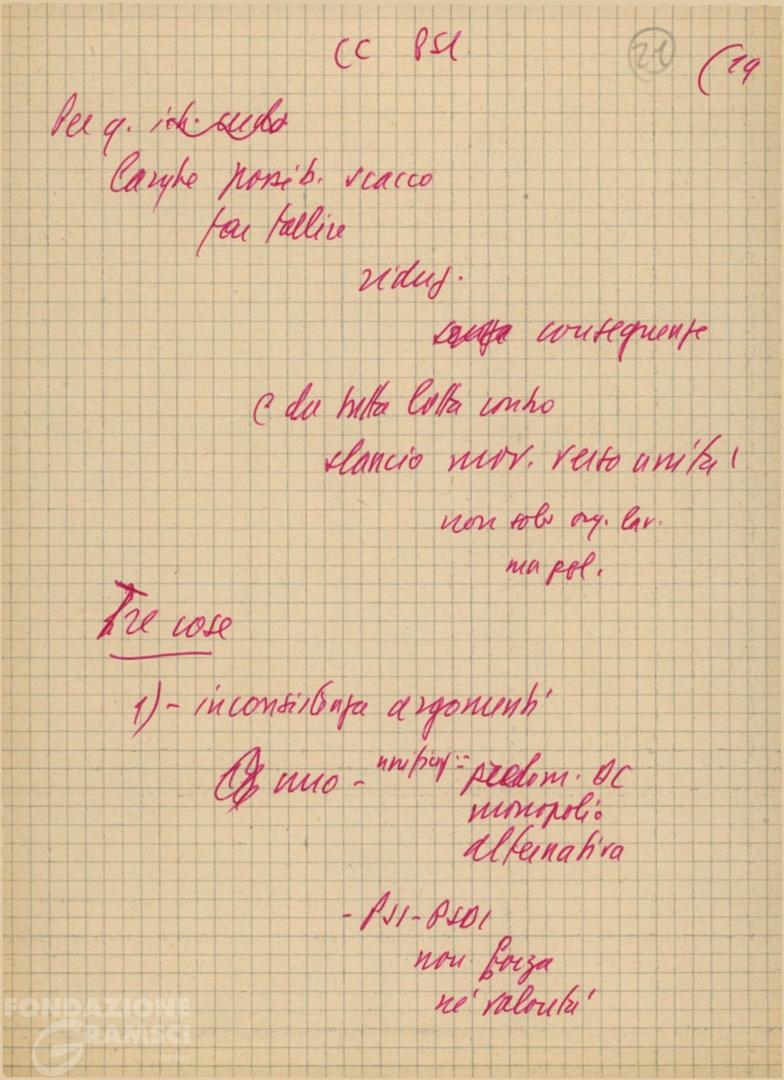 CC PSI
21
(19
Per q.
Larghe possib. scacco
far fallire
riduz.
conseguenze
C da tutta lotta contro
slancio mov. verso unità!
non solo org. lav.
ma pol.
Tre cose
1) - inconsistenza argomenti
uno - unificaz = predom. DC
monopolio
alternativa
- PSI-PSDI
non forza
né volontà
FONDAZIONE
GRAMSCI
onlus